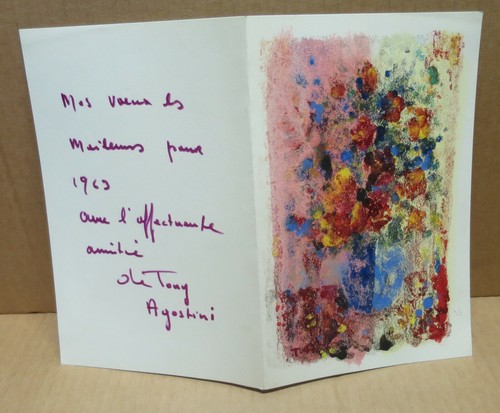 Mes vœux les
Meilleurs pour
1963
avec l'affectueuse
amitié
de Tony
Agostini